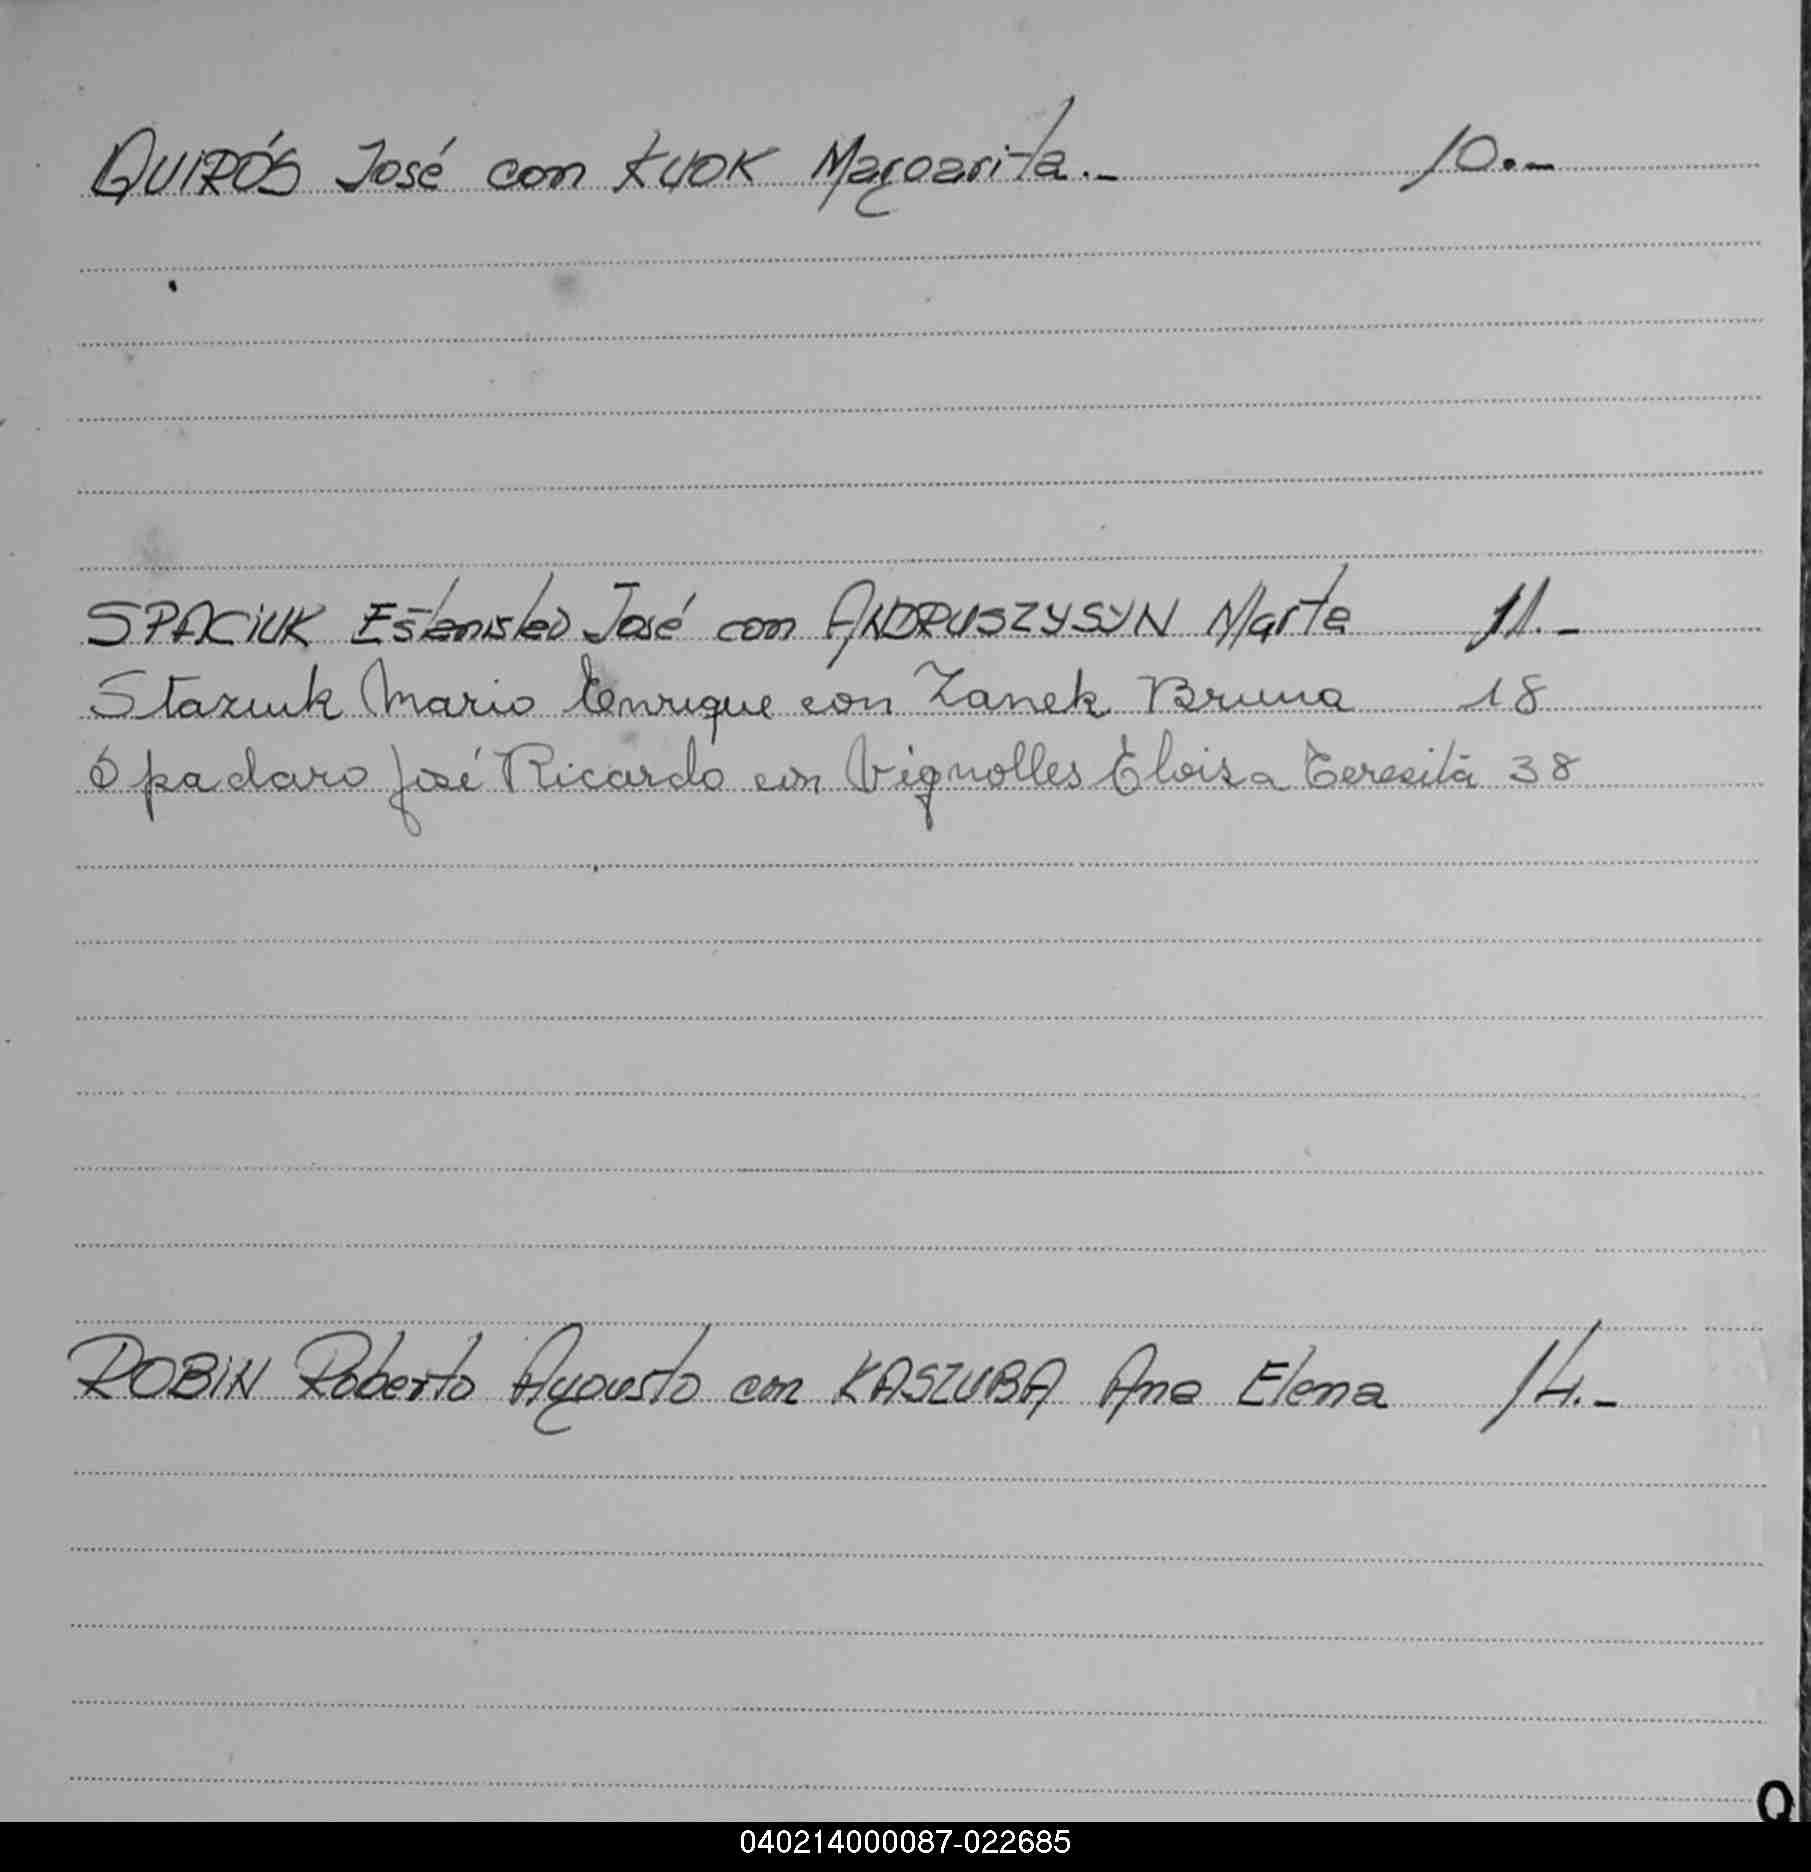 QUIRÓS José con KUOK Margarita.- 10.-
SPACiUK Estanislao José con ANDRUSZYSYN Marta 11.-
Staziuk Mario Enrique con Zanek Bruna 18
Spadaro José Ricardo con Vignolles Eloisa Teresita 38
ROBiN Roberto Augusto con KASZUBA Ana Elena 14.-
Q
040214000087-022685